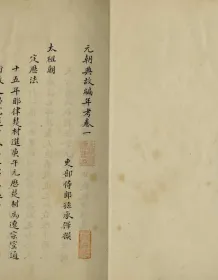 元朝典故編年考卷一
吏部侍郎孫承澤撰
太祖朝
定歷法
十五年耶律楚材進庚午元歷楚材為遼宗室通